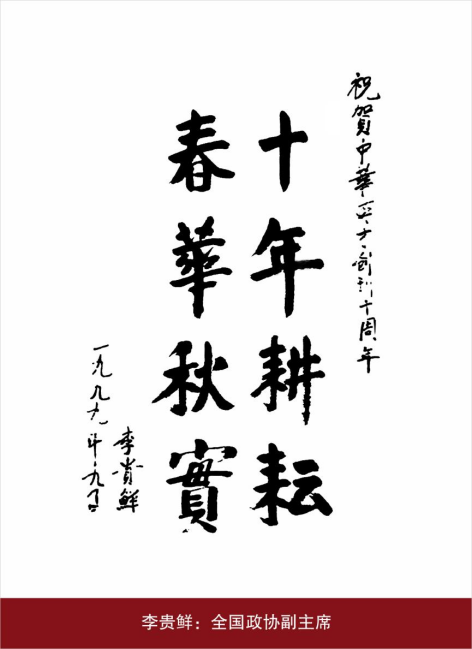 祝賀中華英才創刊十周年
十年耕耘
春華秋實
李貴鮮
一九九九年九月
李贵鲜：全国政协副主席